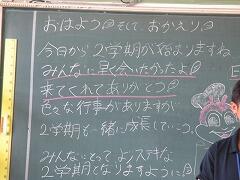 おはよう そして、おかえり。
今日から 2学期が始まりますね
みんなに早く会いたかったよ
来てくれてありがとう
色々な行事がありますが
2学期も一緒に成長していこう。
みんなにとって よりステキな
2学期となりますように